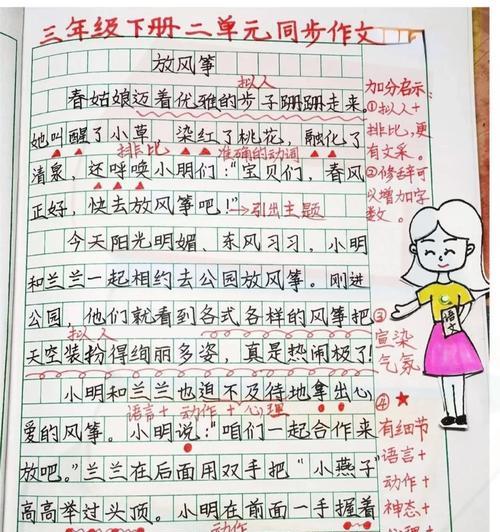 三年级下册二单元同步作文
放风筝
拟人
春姑娘迈着优雅的步子珊珊走来。
她叫醒了小草，染红了桃花，融化了
排比 准确的动词
清泉，还呼唤小明们："宝贝们，春风
正好，快去放风筝吧！" →引出主题
今天阳光明媚、东风习习，小明
和兰兰一起相约去公园放风筝。刚进
公园，他们就看到各式各样的风筝把
拟人
天空装粉得绚丽多姿，真是热闹极了!
小明和兰兰也迫不及待地拿出心
语言+动作+心理
爱的风筝。小明说："咱们一起合作来
放吧。"兰兰在后面用双手把"小燕子"
高高举过头顶。小明在前面一手握着
加分启示:
①拟人+
排比,更
有文采。
②修辞可
以增加字
数。
语文
③
宣染
气氛
④★
有细节
语言+
动作+
神态+
心理